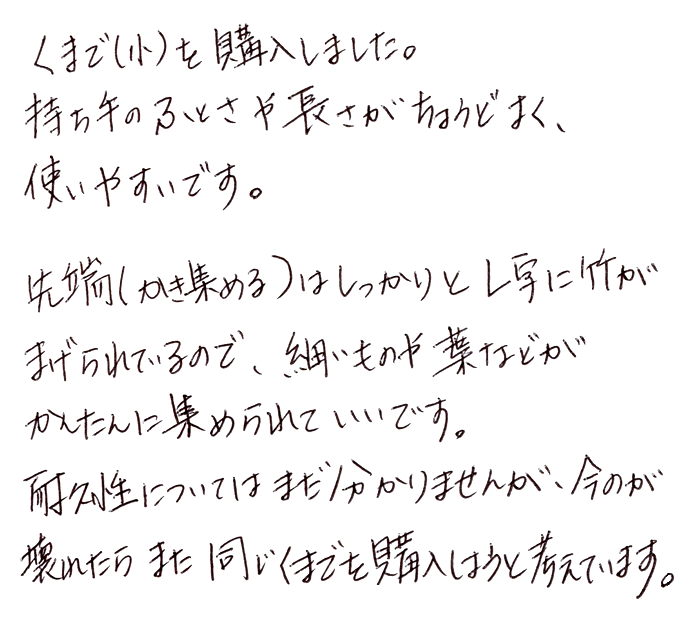 くまで(小)を購入しました。
持ち手のふとさや長さがちょうどよく、
使いやすいです。
先端(かき集める)はしっかりとL字に竹が
まげられているので、細いものや葉などが
かんたんに集められていいです。
耐久性についてはまだ分かりませんが、今のが
壊れたらまた同じくまでを購入しようと考えています。